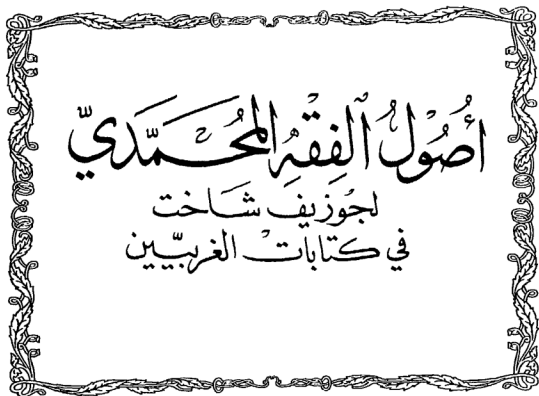 أُصُوْلُ الفِقْهِ المُحَمَّدِيّ
لجُوْزِيف شَاخت
في كتابَاتْ الغربيّين